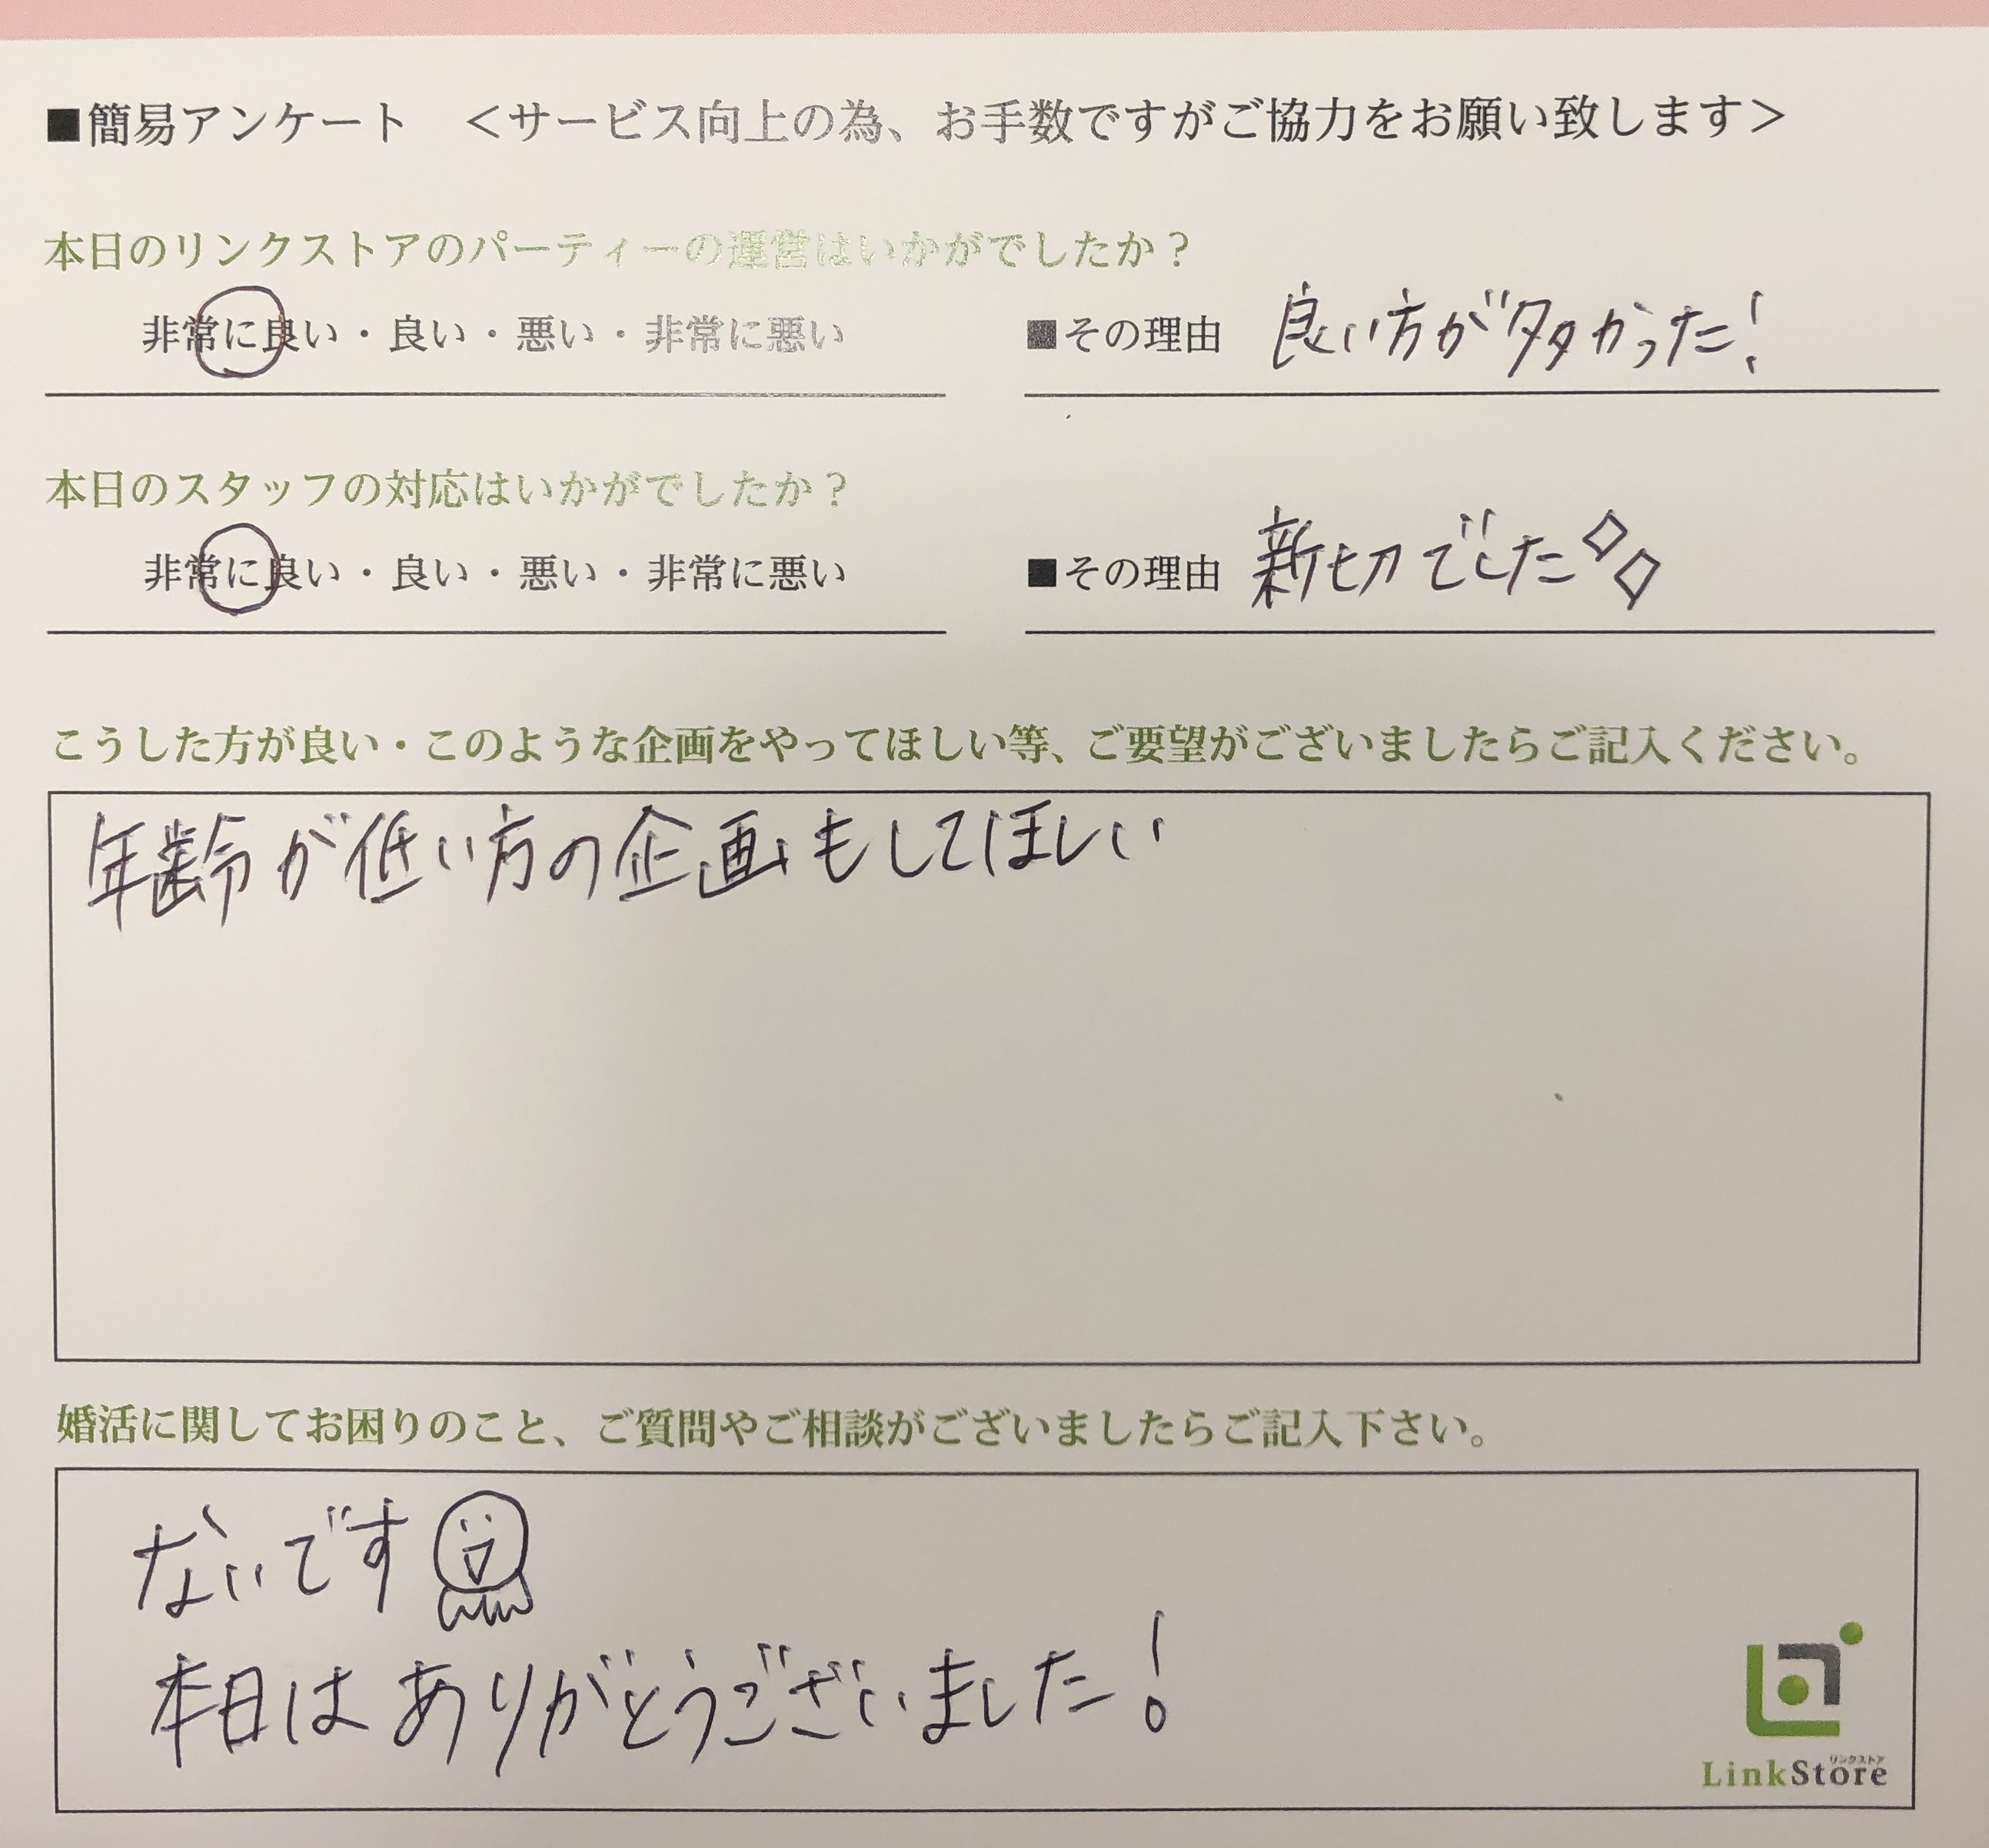 ■簡易アンケート　＜サービス向上の為、お手数ですがご協力をお願い致します＞
本日のリンクストアのパーティーの運営はいかがでしたか？
非常に良い・良い・悪い・非常に悪い
■その理由　良い方が多かった！
本日のスタッフの対応はいかがでしたか？
非常に良い・良い・悪い・非常に悪い
■その理由　新切でした
こうした方が良い・このような企画をやってほしい等、ご要望がございましたらご記入ください。
年齢が低い方の企画もしてほしい
婚活に関してお困りのこと、ご質問やご相談がございましたらご記入下さい。
ないです
本日はありがとうございました！
リンクストア
LinkStore